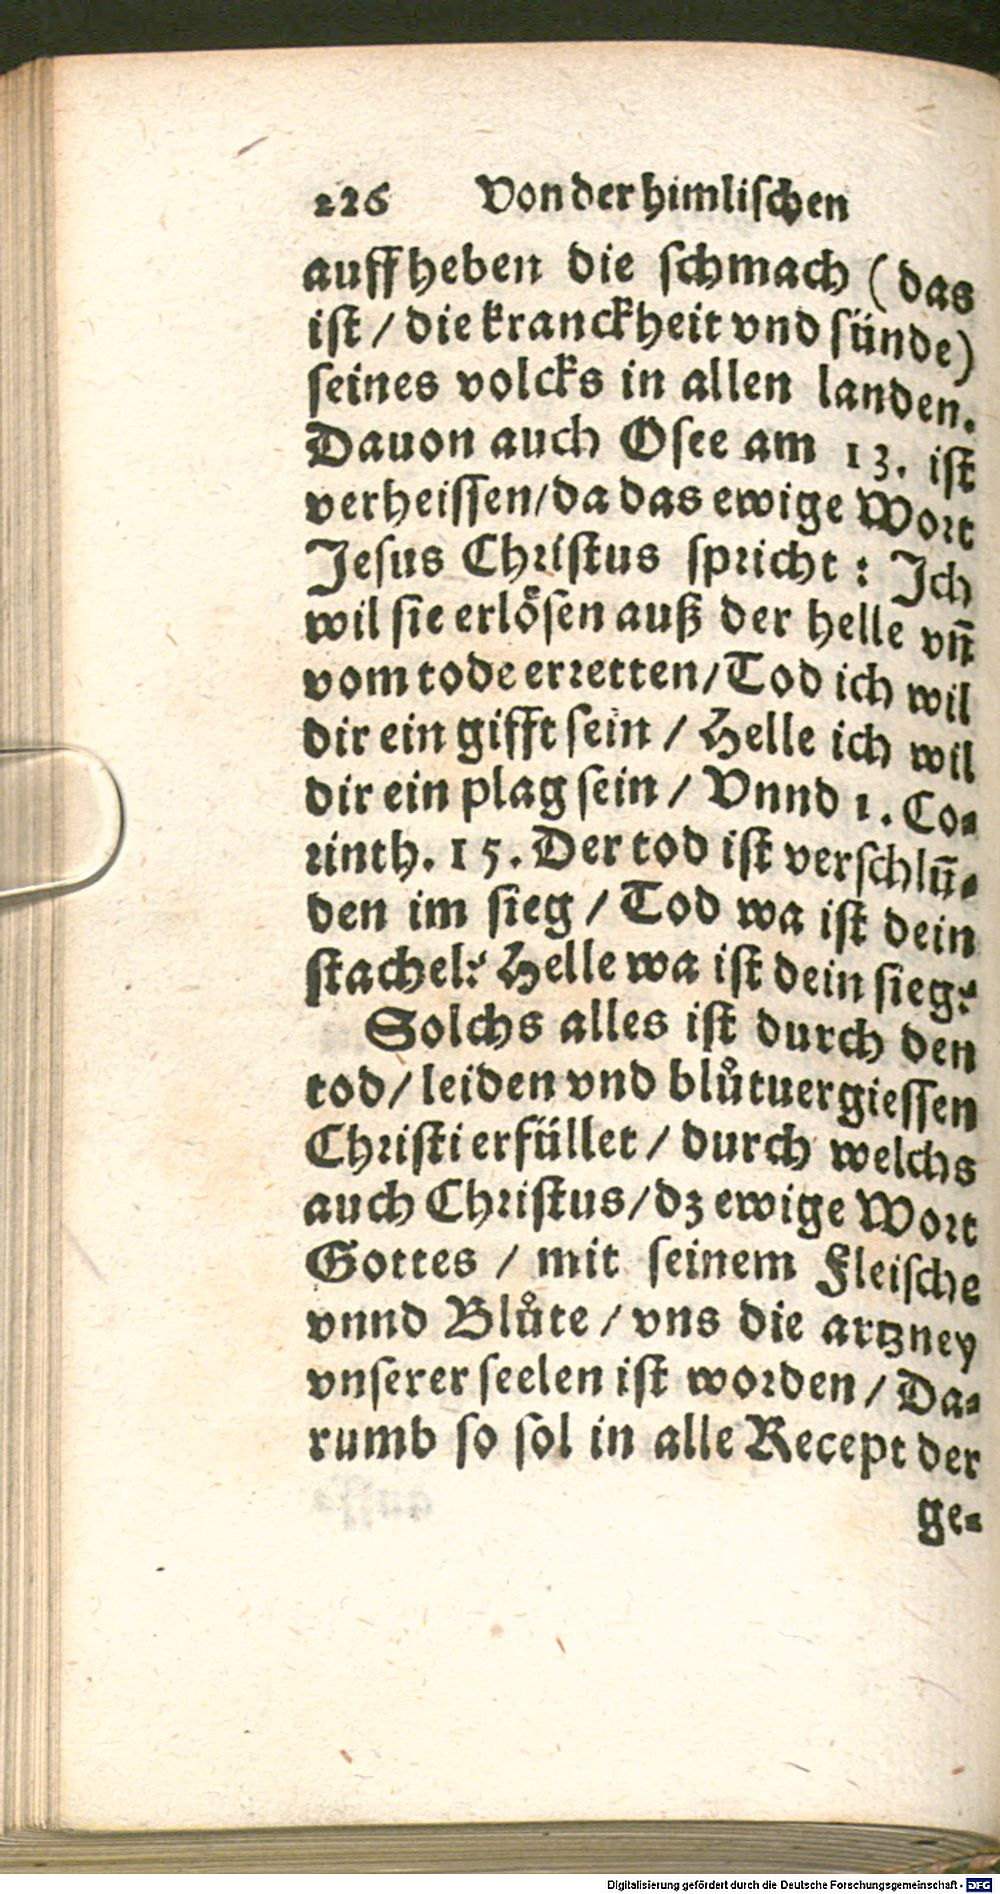 226 Von der himlischen
auffheben die schmach (das
ist / die kranckheit vnd sünde)
seines volcks in allen landen.
Dauon auch Osee am 13. ist
verheissen/da das ewige Wort
Jesus Christus spricht: Ich
wil sie erlösen auß der helle vn̄
vom tode erretten/Tod ich wil
dir ein gifft sein / Helle ich wil
dir ein plag sein / Vnnd 1. Co-
rinth. 15. Der tod ist verschlū-
den im sieg / Tod wa ist dein
stachel? Helle wa ist dein sieg?
Solchs alles ist durch den
tod/ leiden vnd blůtuergiessen
Christi erfüllet / durch welchs
auch Christus/dz ewige Wort
Gottes / mit seinem Fleische
vnnd Blůte / vns die artzney
vnserer seelen ist worden / Da-
rumb so sol in alle Recept der
ge-
Digitalisierung gefördert durch die Deutsche Forschungsgemeinschaft - DFG